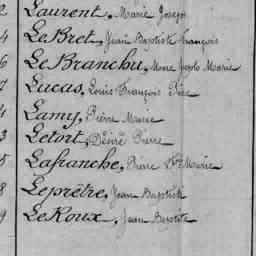 2 Laurent, Marie Joseph
4 LeBret, Jean Baptiste François
6 LeBranchu, Marie Joseph Marie
7 Lucas, Louis François Père
4 Lamy, Pierre Marie
3 Letort, Désiré Pierre
5 Lafranche, Pierre Marie
8 Leprêtre, Jean Baptiste
9 LeRoux, Jean Baptiste